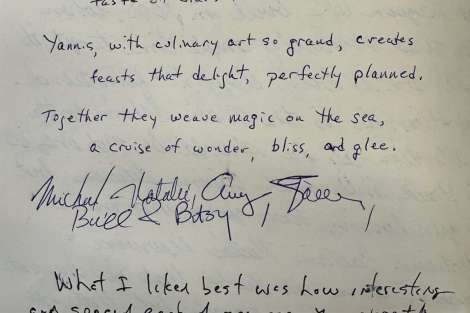 taste of
Yannis, with culinary art so grand, creates
feasts that delight, perfectly planned.
Together they weave magic on the sea,
a cruise of wonder, bliss, and glee.
Natalie, Amy,
& Betsy,
What I liked best was how interesting
and